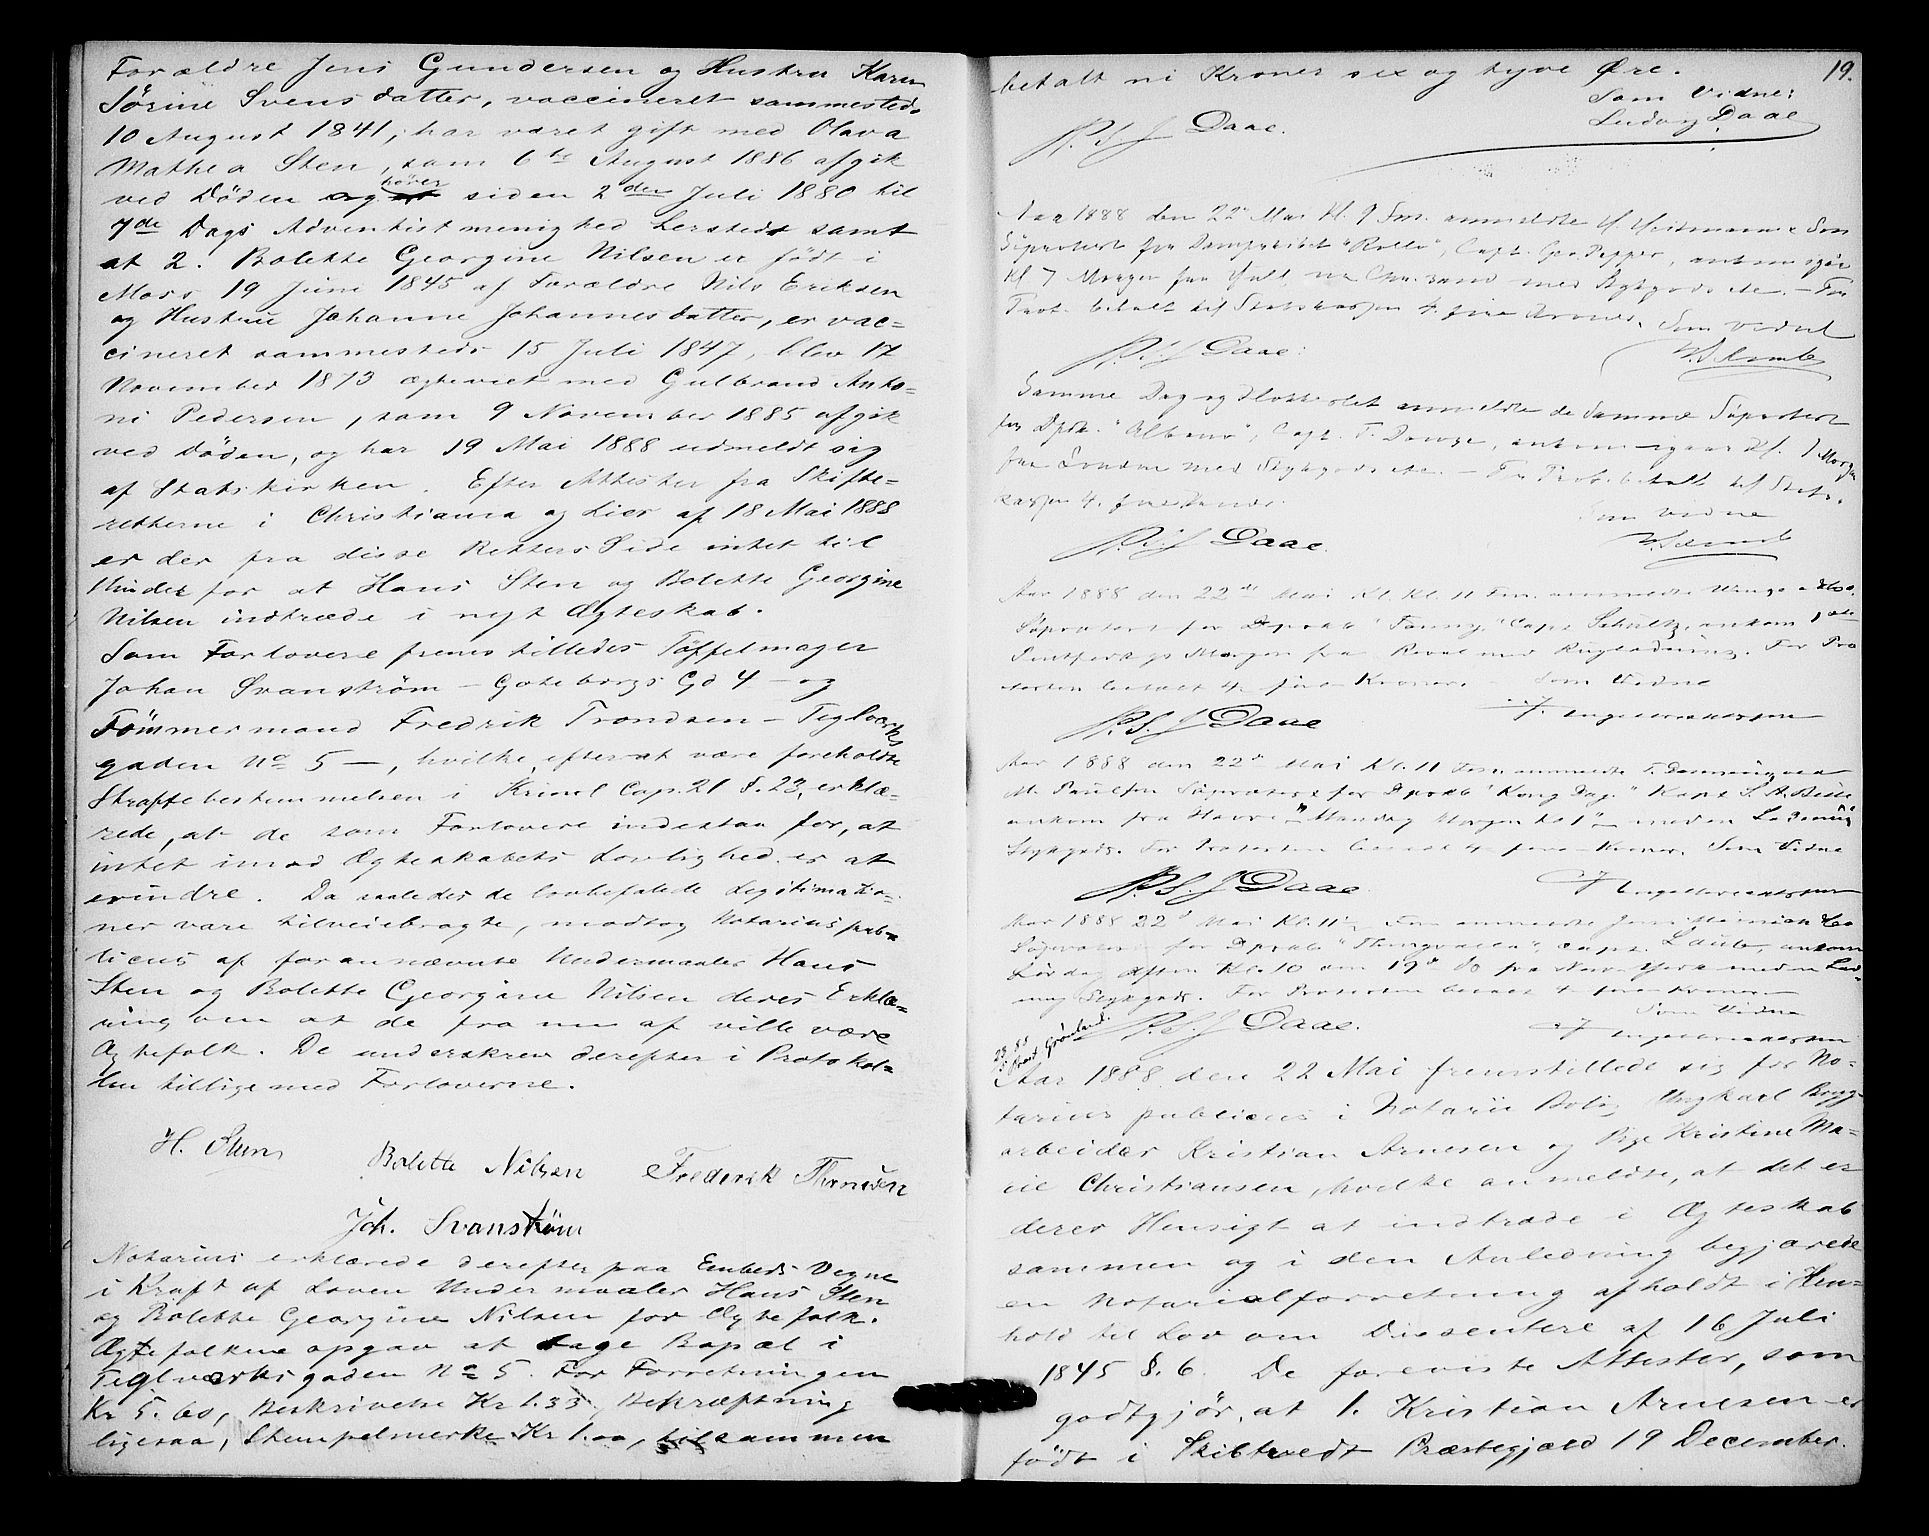 Forældre Jens Gundersen og Hustru Karen
Sørine Svensdatter, vaccineret sammesteds
10 August 1841, har været gift med Olava
Mathea Sten, som 6te August 1886 afgik
ved Döden og hörer siden 2den Juli 1880 til
7de Dags Adventistmenighed hersteds samt
at 2. Bolette Georgine Nilsen er födt i
Moss 19 Juni 1845 af Forældre Nils Eriksen
og Hustru Johanne Johannesdatter, er vac=
cineret sammesteds 15 Juli 1847, blev 17
November 1873 ægteviet med Gulbrand Anto=
ni Pedersen, som 9 November 1885 afgik
ved Döden, og har 19 Mai 1888 udmeldt sig
af Statskirken. Efter Attester fra Skifte=
retterne i Christiania og Lier af 18 Mai 1888
er der fra disse Retters Side intet til
Hinder for at Hans Sten og Bolette Georgine
Nilsen indtræde i nyt Ægteskab.
Som Forlovere fremstilledes Töffelmager
Johan Svanström – Goteborgs Gd 4 – og
Tömmermand Fredrik Trondsen – Teglverks
gaden No 5 –, hvilke, efterat være foreholdte
Straffebestemmelsen i Kriml Cap. 21 §. 23, erklæ=
rede, at de som Forlovere indestaa for, at
intet imod Ægteskabets Lovlighed er at
erindre. Da saaledes de lovbefalede Legitimatio=
ner vare tilveiebragte, modtog Notarius pub=
licus af forannævnte Undermaaler Hans
Sten og Bolette Georgine Nilsen deres Erklæ=
ring om at de fra nu af ville være
Ægtefolk. De underskrev derefter i Protokol=
len tilligemed Forloverne.
H. Sten
Bolette Nilsen Frederik Thronsen
Joh. Svanström
Notarius erklærede derefter paa Embeds Vegne
i Kraft af Loven Undermaaler Hans Sten
og Bolette Georgine Nilsen for Ægtefolk.
Ægtefolkene opgav at tage Bopæl i
Teglværksgaden No 5. For Forretningen
Kr 5. 60, Beskrivelse Kr 1.33, Bekræftning
ligesaa, Stempelmerke Kr 1.00, tilsammen
19.
betalt ni Kroner sex og tyve Øre.
Som Vidne:
Ludvig Daae
P. S. J Daae.
Aar 1888 den 22de Mai Kl. 9 Fm. anmeldte H Heitmann & Sön
Söprotest for Dampskibet "Rollo", Capt. Geo. Pepper, ankom igår
Kl 7 Morgen fra Hull via Chr.sand med Stykgods &c. – For
Prot. betalt til Statskassen 4. fire Kroner. Som Vidne
P. S. J Daae.
Samme Dag og Klokkeslet anmeldte de Samme Söprotest
for Dpsk. "Albano", Capt. T. , ankom igaar Kl. 7 Morgen
fra London med Stykgods &c. – For Prot. betalt til Stats=
kassen 4. fire Kroner.
Som Vidne
P. S. J Daae.
Aar 1888 den 22de Mai Kl. Kl. 11 Fm. anmeldte & Co.
Söprotest for Dpskb "Fanny," Capt Schultz, ankom 1ste
Pintsedags Morgen fra Reval med Rugladning. For Pro
testen betalt 4 – fire – Kroner. Som Vidne
P. S. J Daae
Aar 1888 den 22de Mai Kl. 11 Form. anmeldte T. ved
M. Paulsen Söprotest for Dpskb "Kong Dag," Kapt S. A.
ankom fra Havre – Mandag Morgen Kl 1 – med en Ladning
Stykgods. For Protesten betalt 4 – fire – Kroner. Som Vidne
P. S. J Daae.
Aar 1888 22d Mai Kl. 11½ Fm anmeldte & Co
Söprotest for Dpskb "Thingvalla", Capt. Laub, ankom
Lördag Aften Kl. 10 den 19de ds fra New York med en Lad=
ning Stykgods. For Protesten betalt 4 – fire Kroner –
Som Vidne
P. S. J Daae.
Aar 1888 den 22 Mai fremstillede sig for No=
tarius publicus i Notarii Bolig Ungkarl Brygg=
arbeider Kristian Arnesen og Pige Kristine Ma=
rie Christiansen, hvilke anmeldte, at det er
deres Hensigt at indtræde i Ægteskab
sammen og i den Anledning begjærede
en Notarialforretning afholdt i Hen=
hold til Lov om Dissentere af 16 Juli
1845 §. 6. De foreviste Attester, som
godtgjör, at 1. Kristian Arnesen er
födt i Skibtvedt Præstegjæld 19 December